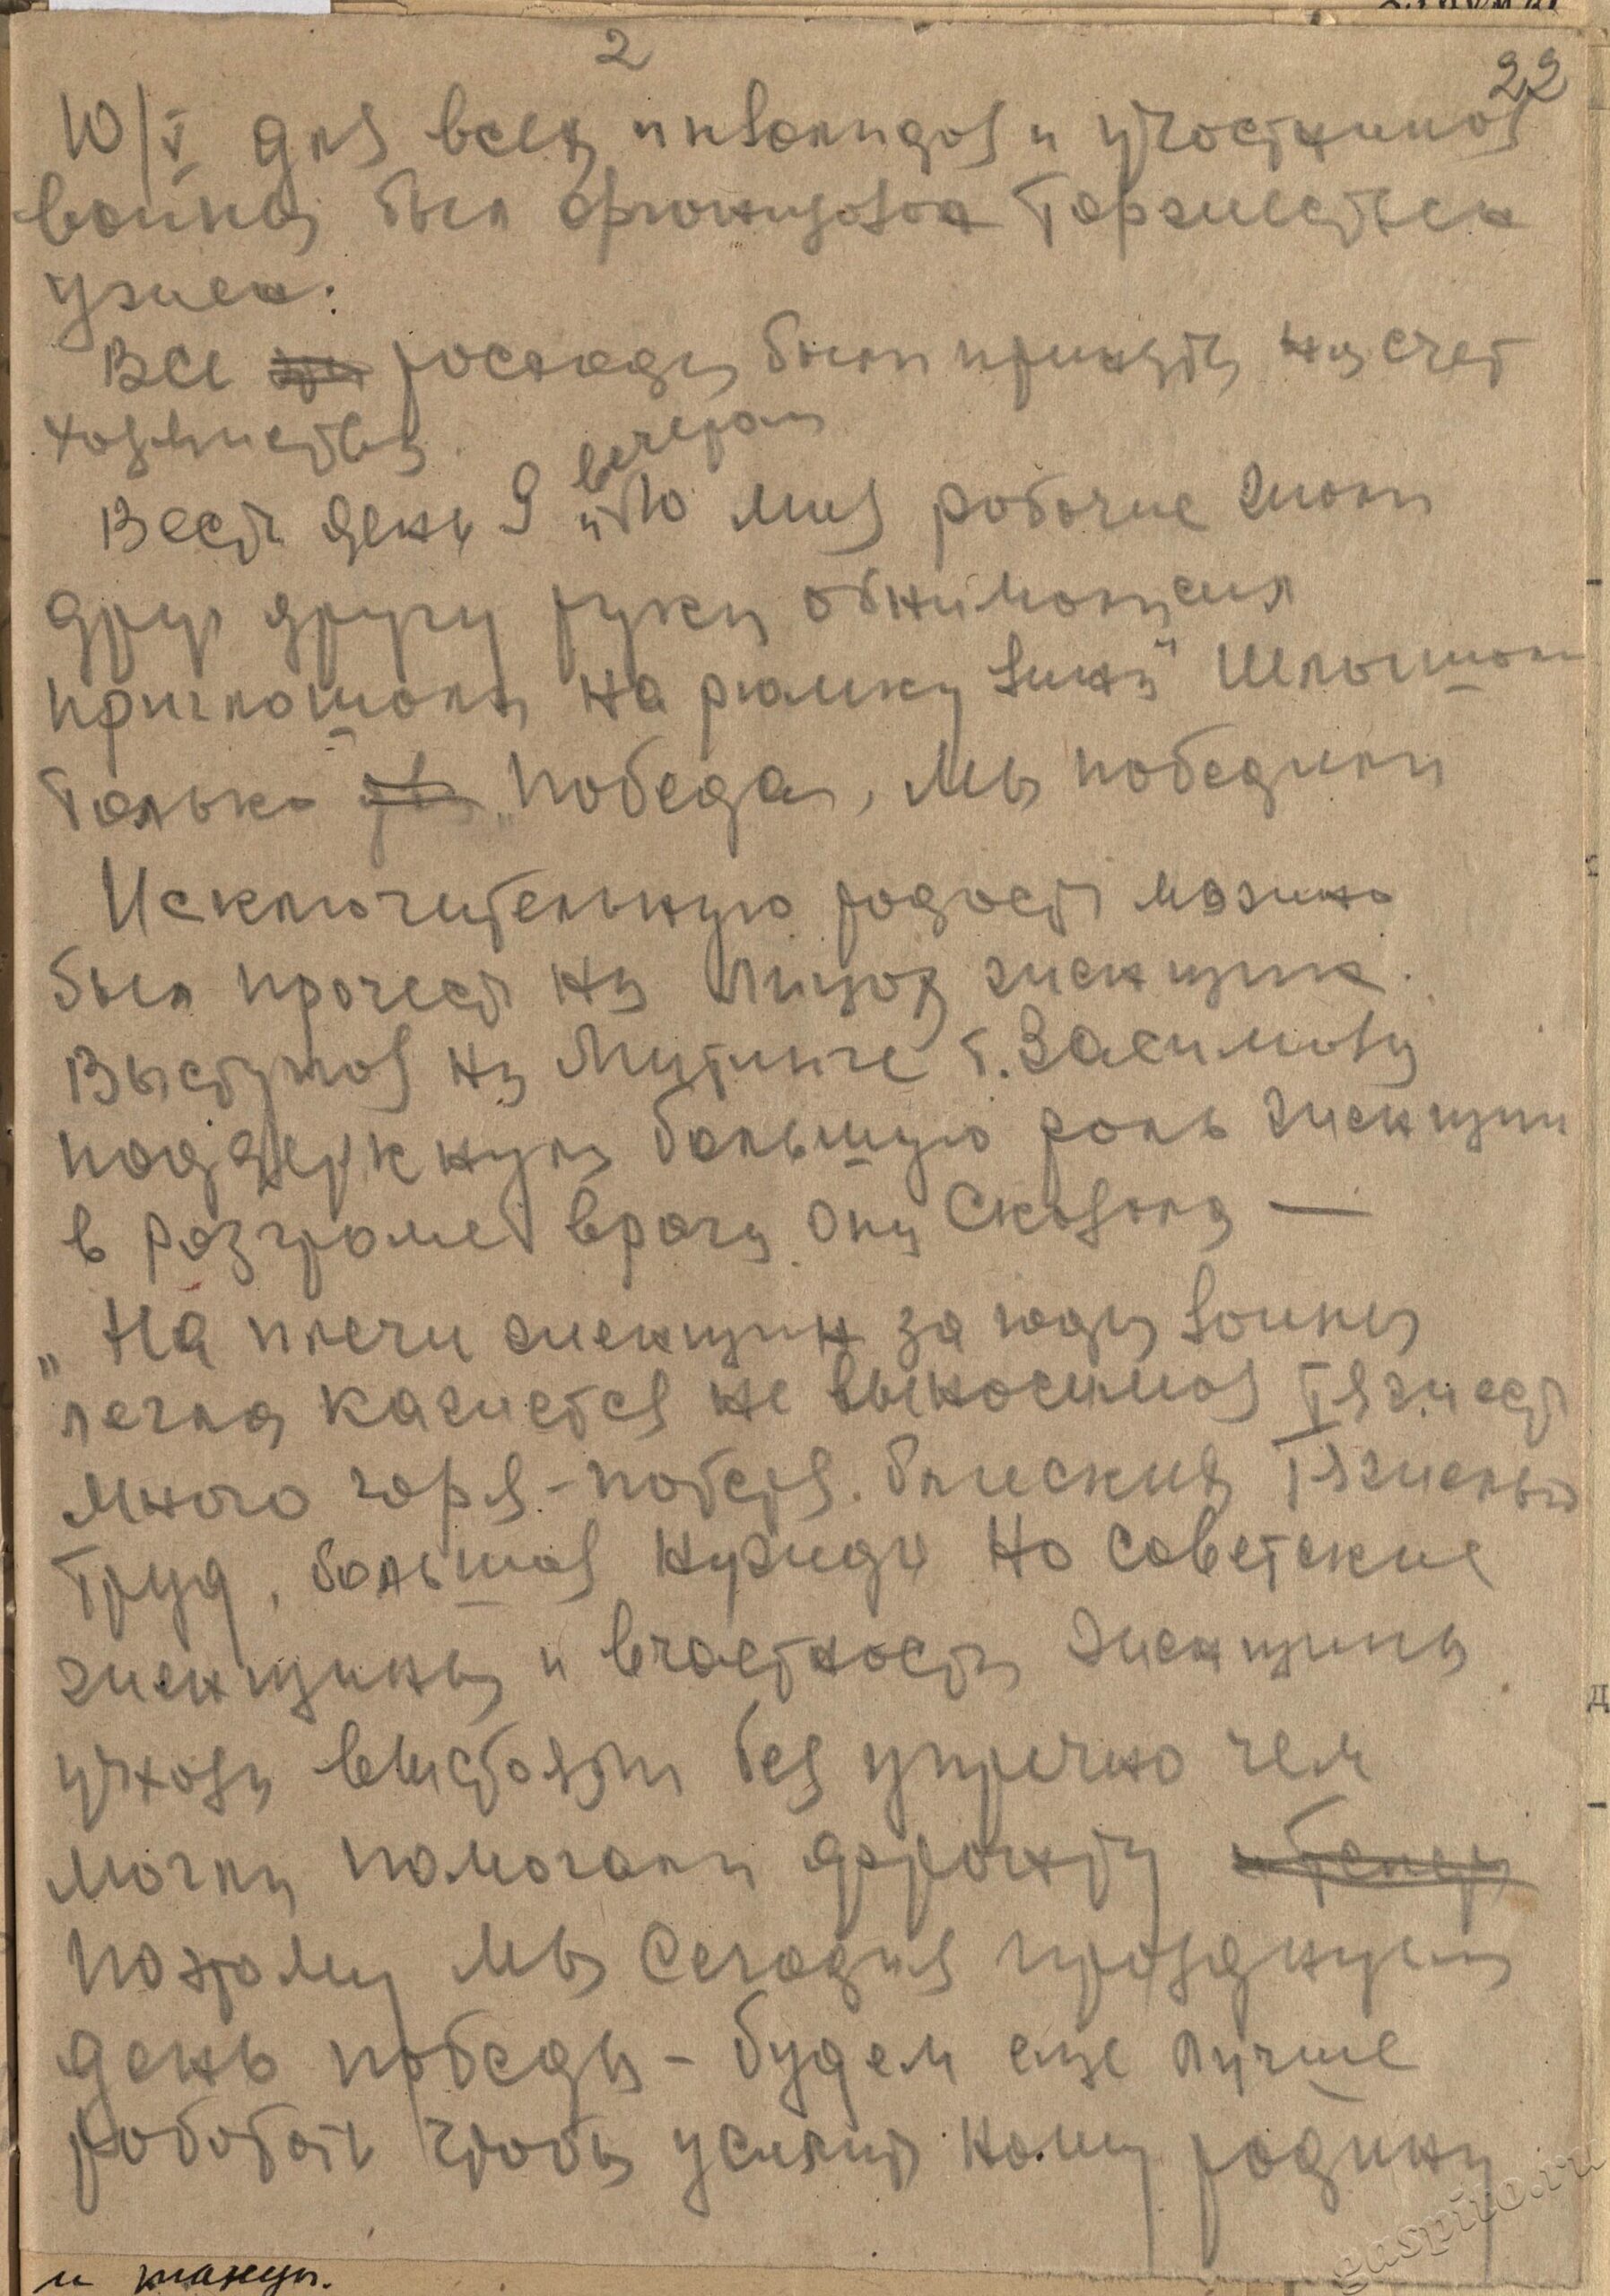 2
22
10/V для всех инвалидов и участников
войны был организован торжествен
ужин.
Все расходы были приняты на счет
хозяйства.
вечером
Весь день 9 и 10 мая рабочие жали
друг другу руки обнимались
приглашали на рюмку вина
только "победа, мы победили
Исключительную радость можно
был прочесть на лицах женщин.
Выступая на митинге т. Засимова
поддчеркнула большую роль женщин
в разгроме врага она сказала —
"На плечи женщин за годы войны
легла кажется не выносимая тяжесть
много горя - потеря близких тяжелый
труд, большая нужда но советские
женщины и вчастности женщины
учхоза без упречно чем
могли помогали фронту
поэтому мы сегодня празднуем
день победы - будем еще лучше
работать чтобы усилить нашу родину
и танцы.
gaspito.ru